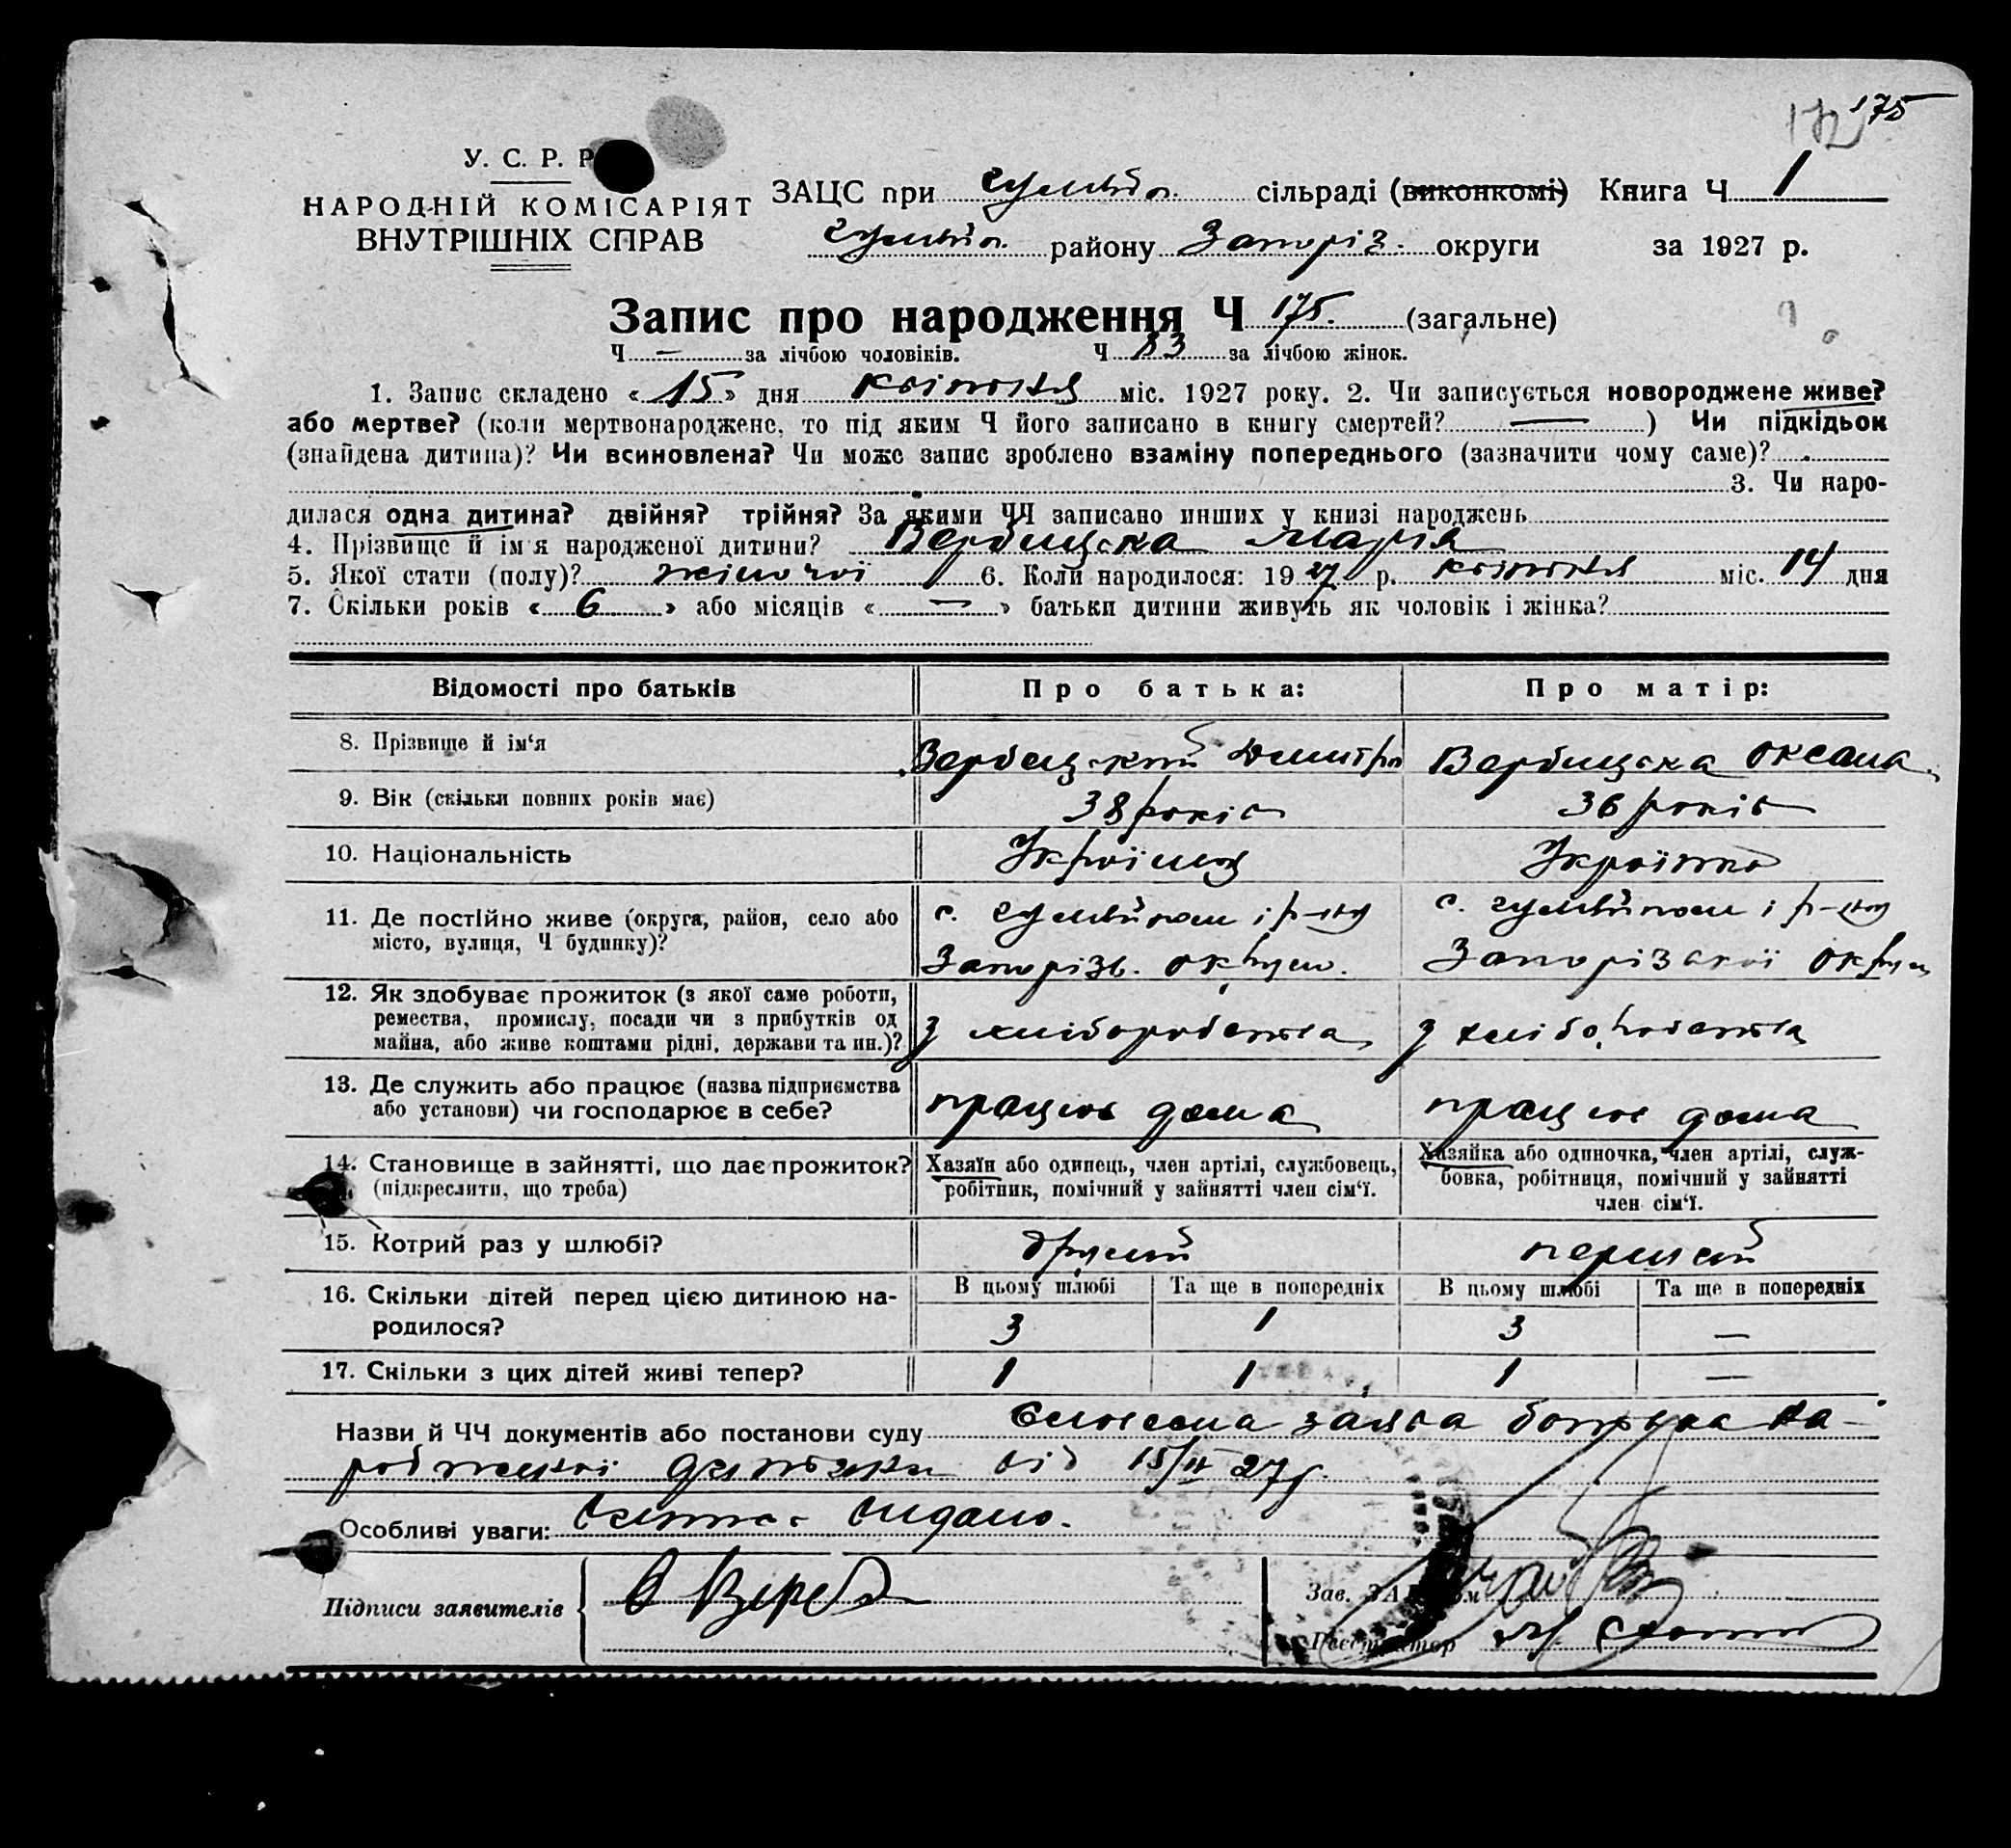 175
172
У. С. Р. Р
НАРОДНІЙ КОМІСАРІЯТ
ВНУТРІШНІХ СПРАВ
ЗАЦС при Гуляйп. сільраді (виконкомі) Книга Ч 1
Гуляйп. району Запоріз. округи за 1927 р.
Запис про народження Ч 175. (загальне)
Ч — за лічбою чоловіків. Ч 83 за лічбою жінок.
1. Запис складено « 15 » дня квітня міс. 1927 року. 2. Чи записується новороджене живе?
або мертве? (коли мертвонароджене, то під яким Ч його записано в книгу смертей? — ) Чи підкідьок
(знайдена дитина)? Чи всиновлена? Чи може запис зроблено взаміну попереднього (зазначити чому саме)?
3. Чи наро-
дилася одна дитина? двійня? трійня? За якими ЧЧ записано инших у книзі народжень
4. Прізвище й ім'я народженої дитини? Вербицька Марія
5. Якої стати (полу)? жіночої 6. Коли народилося: 19 27 р. квітня міс. 14 дня
7. Скільки років « 6 » або місяців « — » батьки дитини живуть як чоловік і жінка?
Відомості про батьків Про батька: Про матір:
8. Прізвище й ім'я Вербицький Дмитро Вербицька Оксана
9. Вік (скільки повних років має) 38 років 36 років
10. Національність Українець Українка
11. Де постійно живе (округа, район, село або
місто, вулиця, Ч будинку)?
с. Гуляйполе і р-ну
Запорізь. округи.
с. Гуляйполе і р-ну
Запорізької округи
12. Як здобуває прожиток (з якої саме роботи,
ремества, промислу, посади чи з прибутків од
майна, або живе коштами рідні, держави та ин.)?
з хліборобства з хліборобства
13. Де служить або працює (назва підприємства
або установи) чи господарює в себе?
працює дома працює дома
14. Становище в зайнятті, що дає прожиток?
(підкреслити, що треба)
Хазяїн або одинець, член артілі, службовець,
робітник, помічний у зайнятті член сім'ї.
Хазяйка або одиночка, член артілі, служ-
бовка, робітниця, помічний у зайнятті
член сім'ї.
15. Котрий раз у шлюбі? другий перший
16. Скільки дітей перед цією дитиною на-
родилося?
В цьому шлюбі Та ще в попередніх В цьому шлюбі Та ще в попередніх
3 1 3 —
17. Скільки з цих дітей живі тепер? 1 1 1 —
Назви й ЧЧ документів або постанови суду Словесна заява батька на-
родженої дитини від 15/IV 27 р.
Особливі уваги: Витяг видано.
Підписи заявителів
Зав.